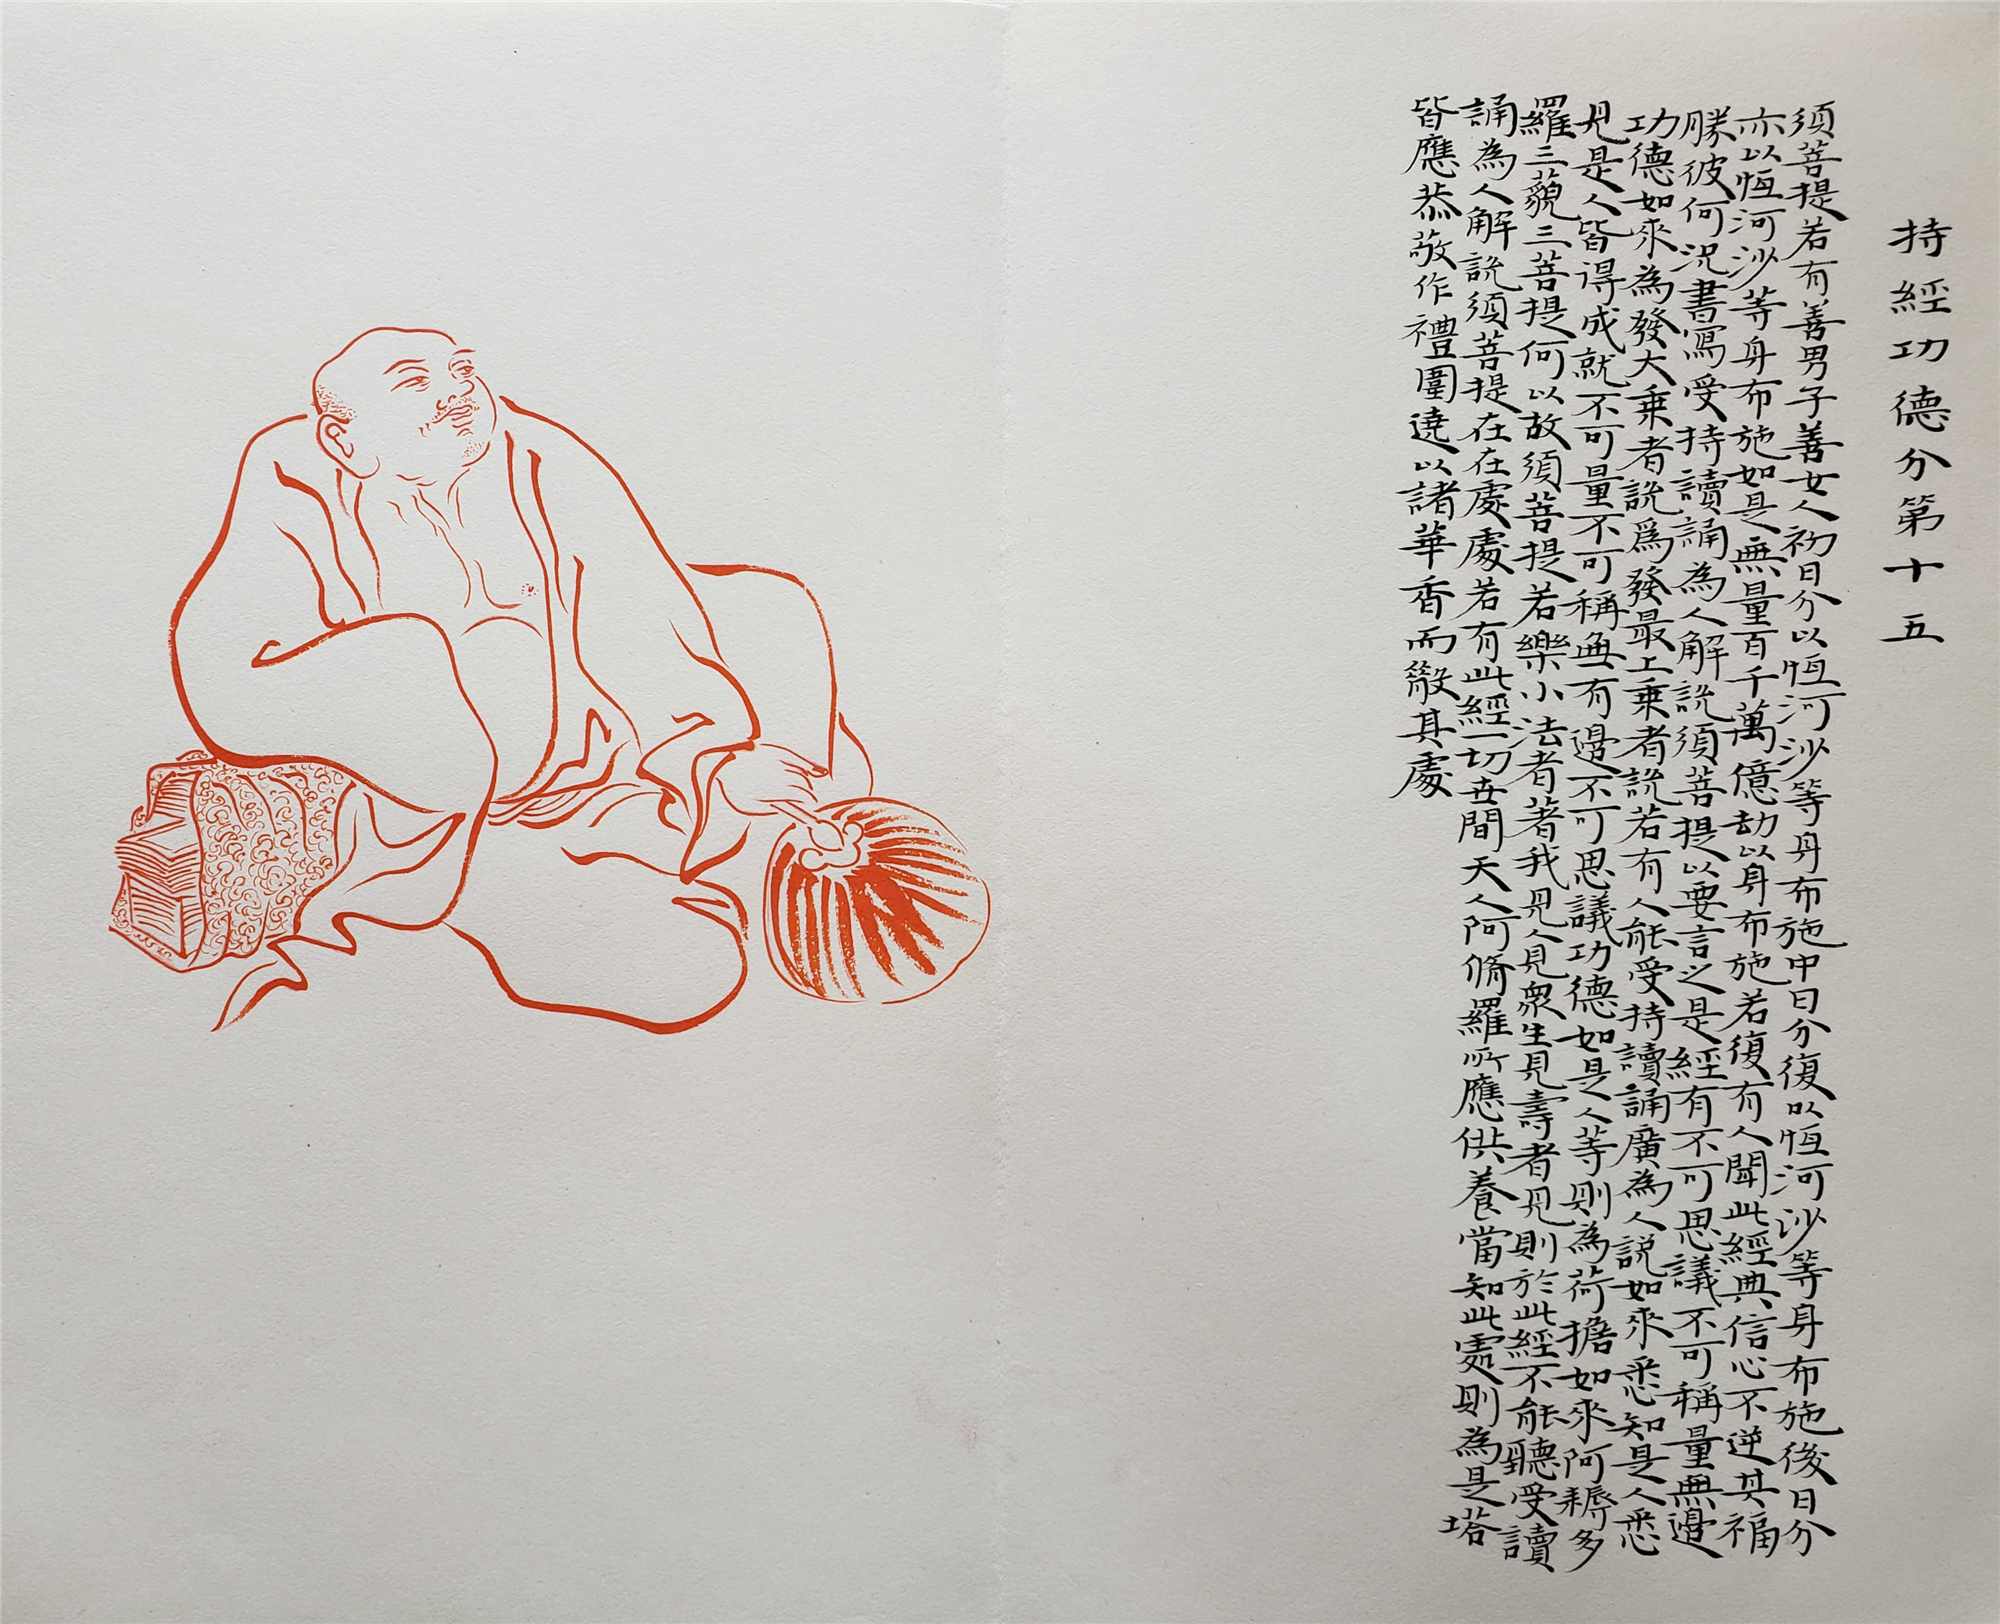 持經功德分第十五
須菩提若有善男子善女人初日分以恆河沙等身布施中日分復以恆河沙等身布施後日分
亦以恆河沙等身布施如是無量百千萬億劫以身布施若復有人聞此經典信心不逆其福
勝彼何況書寫受持讀誦為人解說須菩提以要言之是經有不可思議不可稱量無邊
功德如來為發大乘者說為發最上乘者說若有人能受持讀誦廣為人說如來悉知是人悉
見是人皆得成就不可量不可稱無有邊不可思議功德如是人等則為荷擔如來阿耨多
羅三藐三菩提何以故須菩提若樂小法者著我見人見眾生見壽者見則於此經不能聽受讀
誦為人解說須菩提在在處處若有此經一切世間天人阿脩羅所應供養當知此處則為是塔
皆應恭敬作禮圍遶以諸華香而散其處